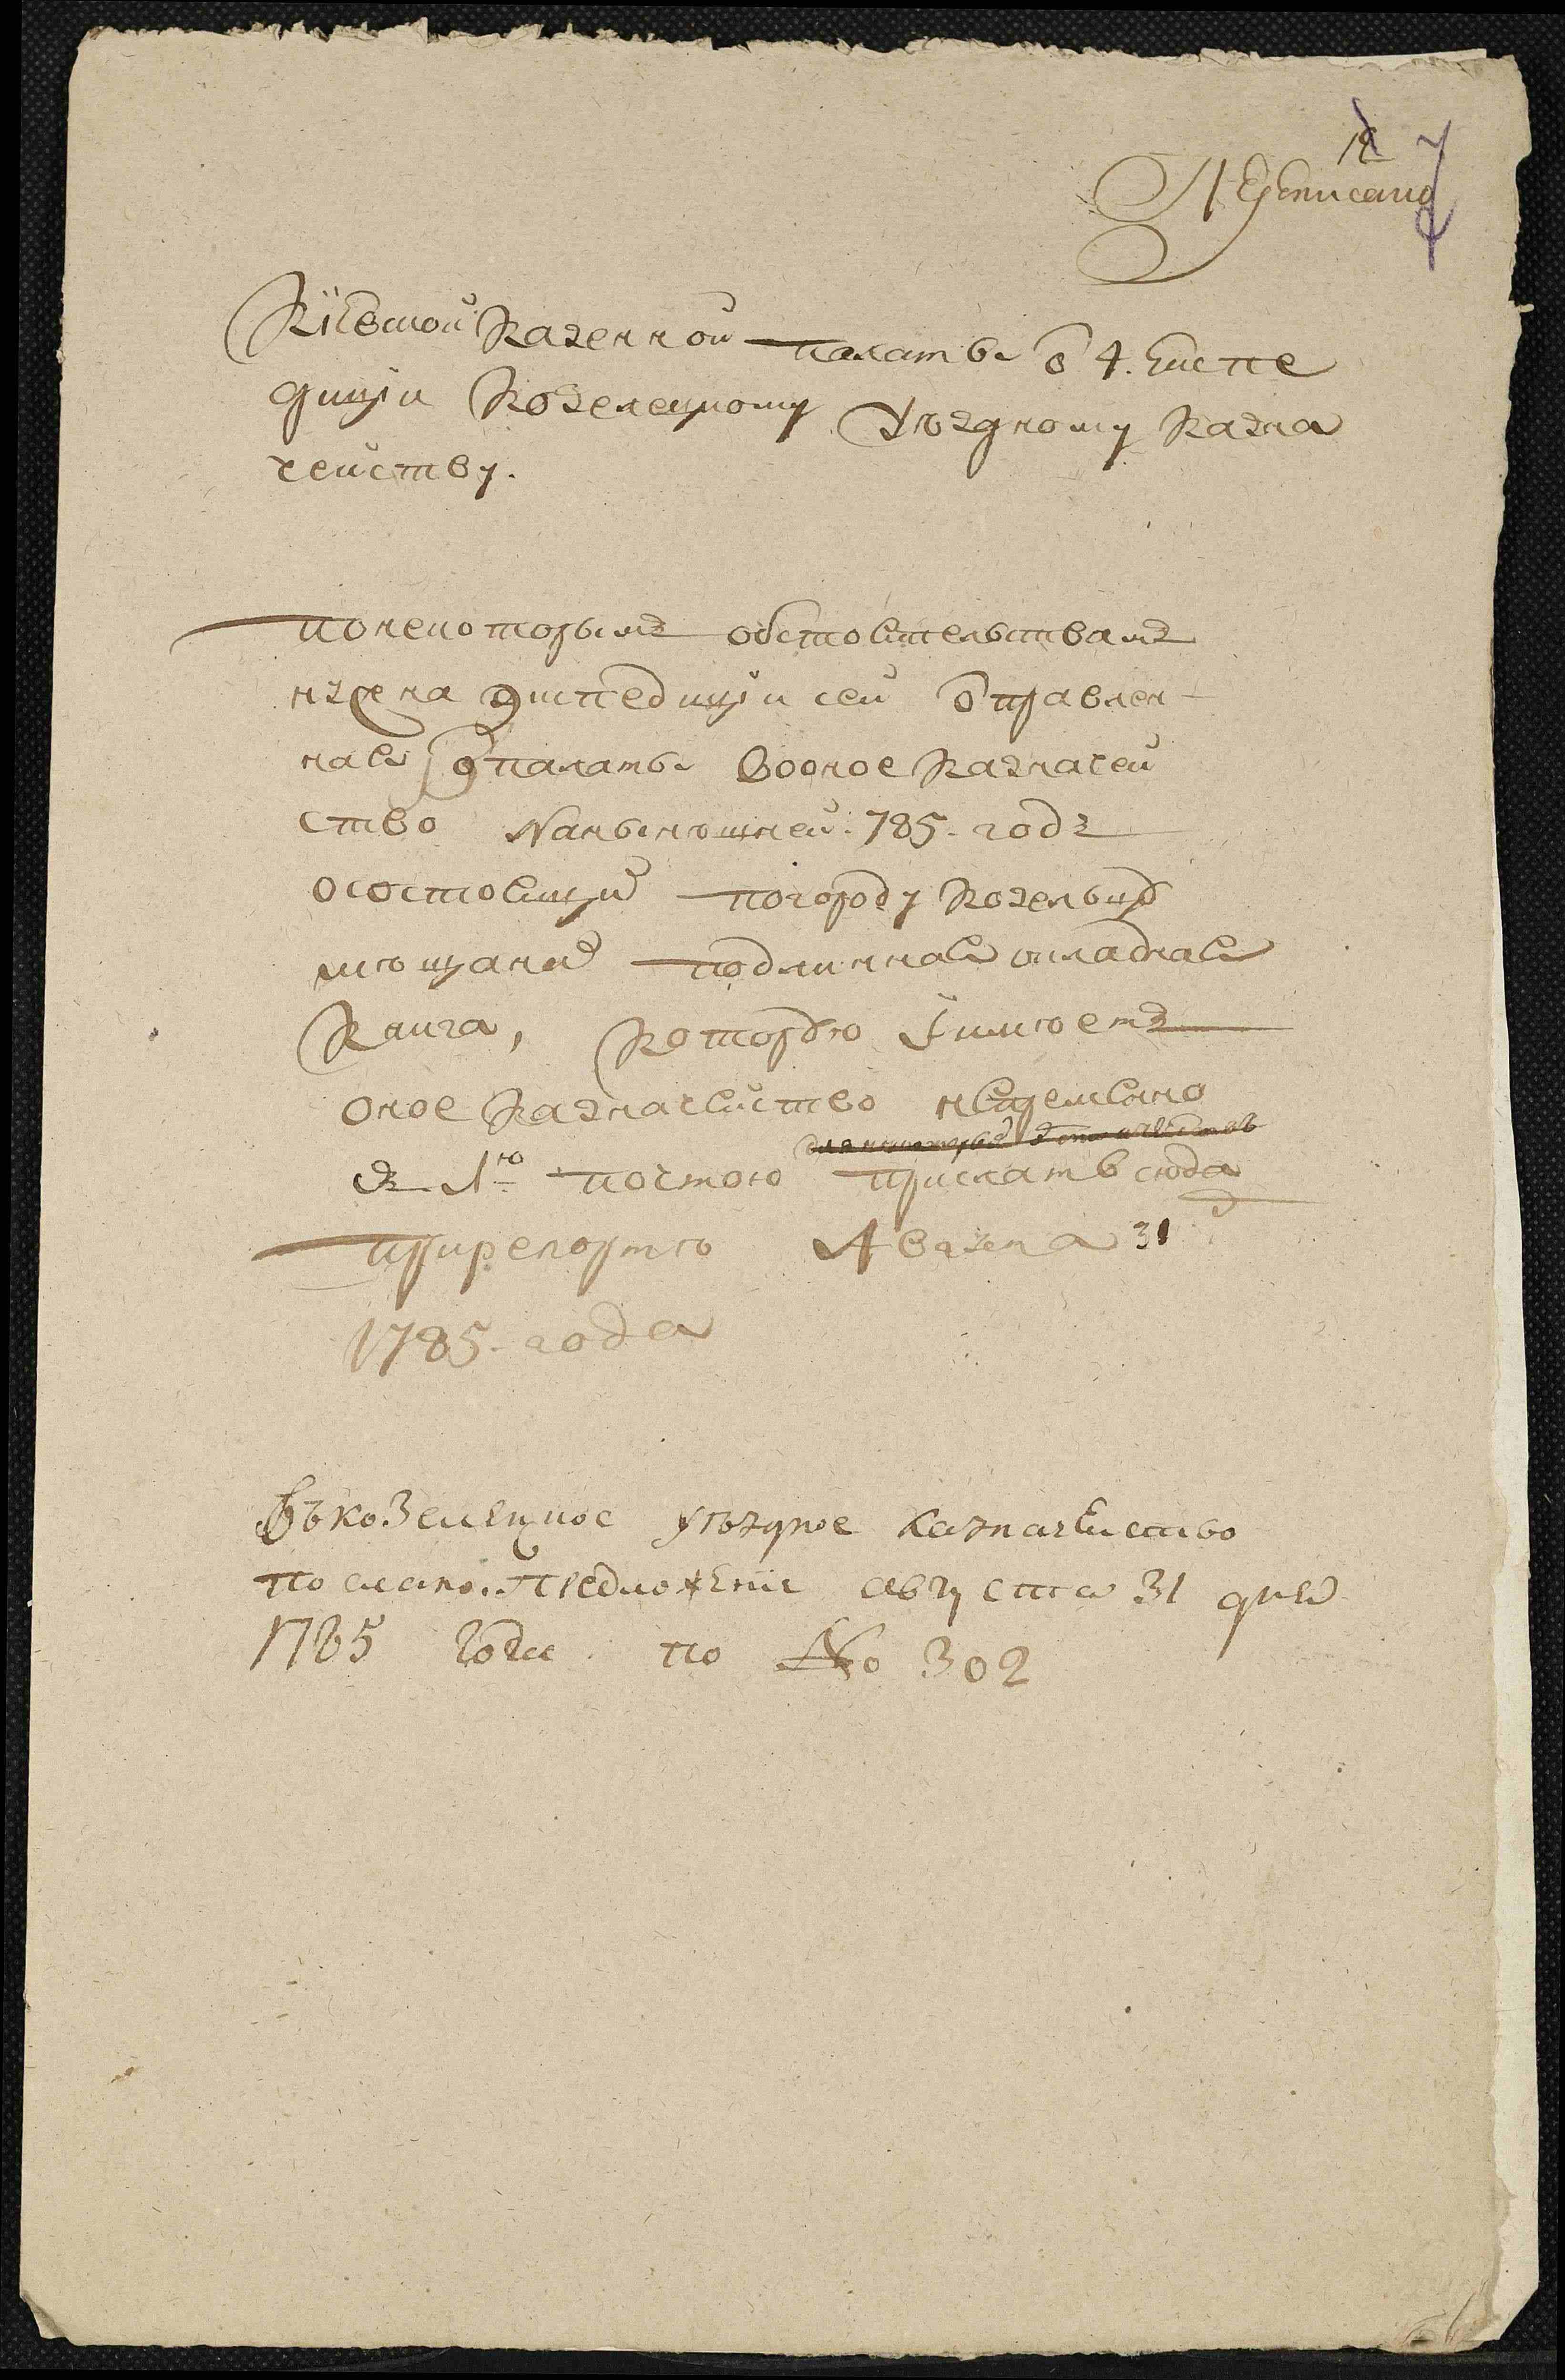 Кіевской Казенной палаты ѿ 4. Експе
диціи Козелецкому Уѣздному Казна
чейству.
понекоторымъ обстоятелствамъ
нужна экспедиціи сей ѿправлен
ная ѿ палаты воное Казначей
ство нанынѣшней 785. годъ
осостоящихъ погороду Козельцу
мѣщанахъ подлинная окладная
Книга, Которую имѣетъ
оное Казначейство непремѣнно
съ 1ю почтою прислать сюда
прирепортѣ Августа 31 д
1785. года
Въкозелецкое уѣздное казначейство
послано предложеніе августа 31 дня
1785 года по №о 302